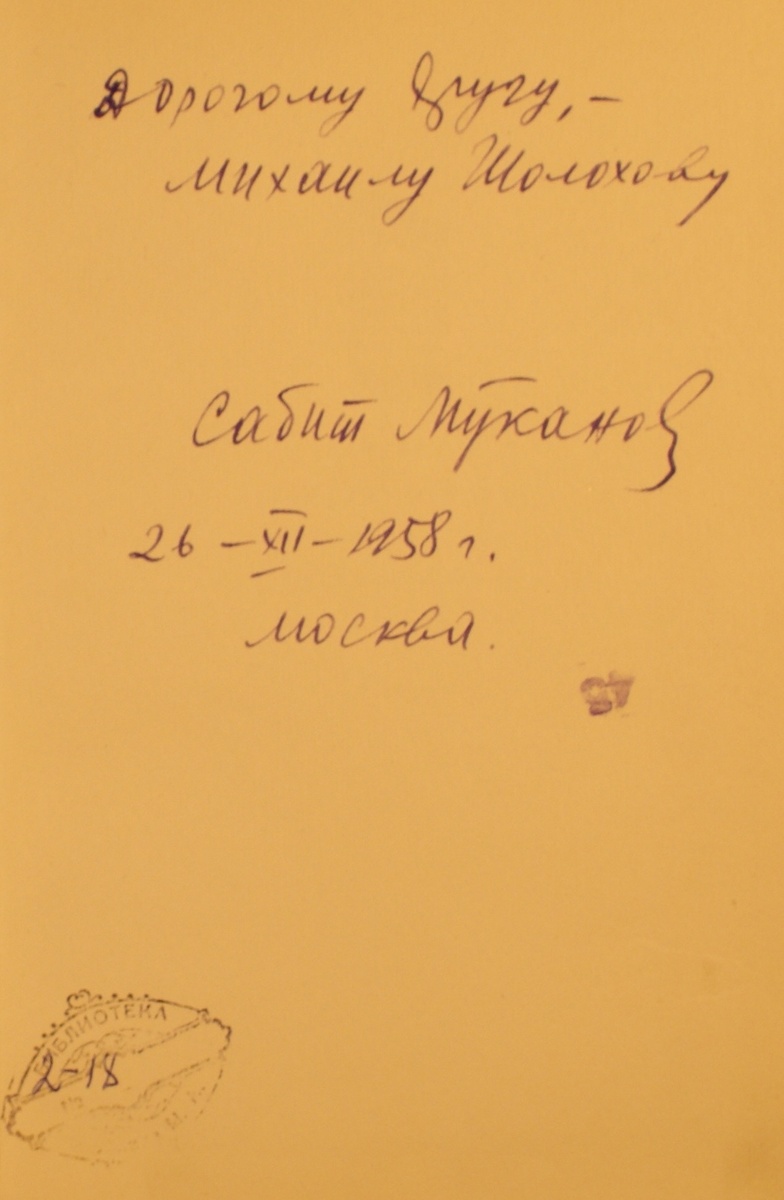 Дорогому другу, –
Михаилу Шолохову
Сабит Мұканов
26 – XII – 1958 г.
Москва.
БИБЛИОТЕКА
2-18